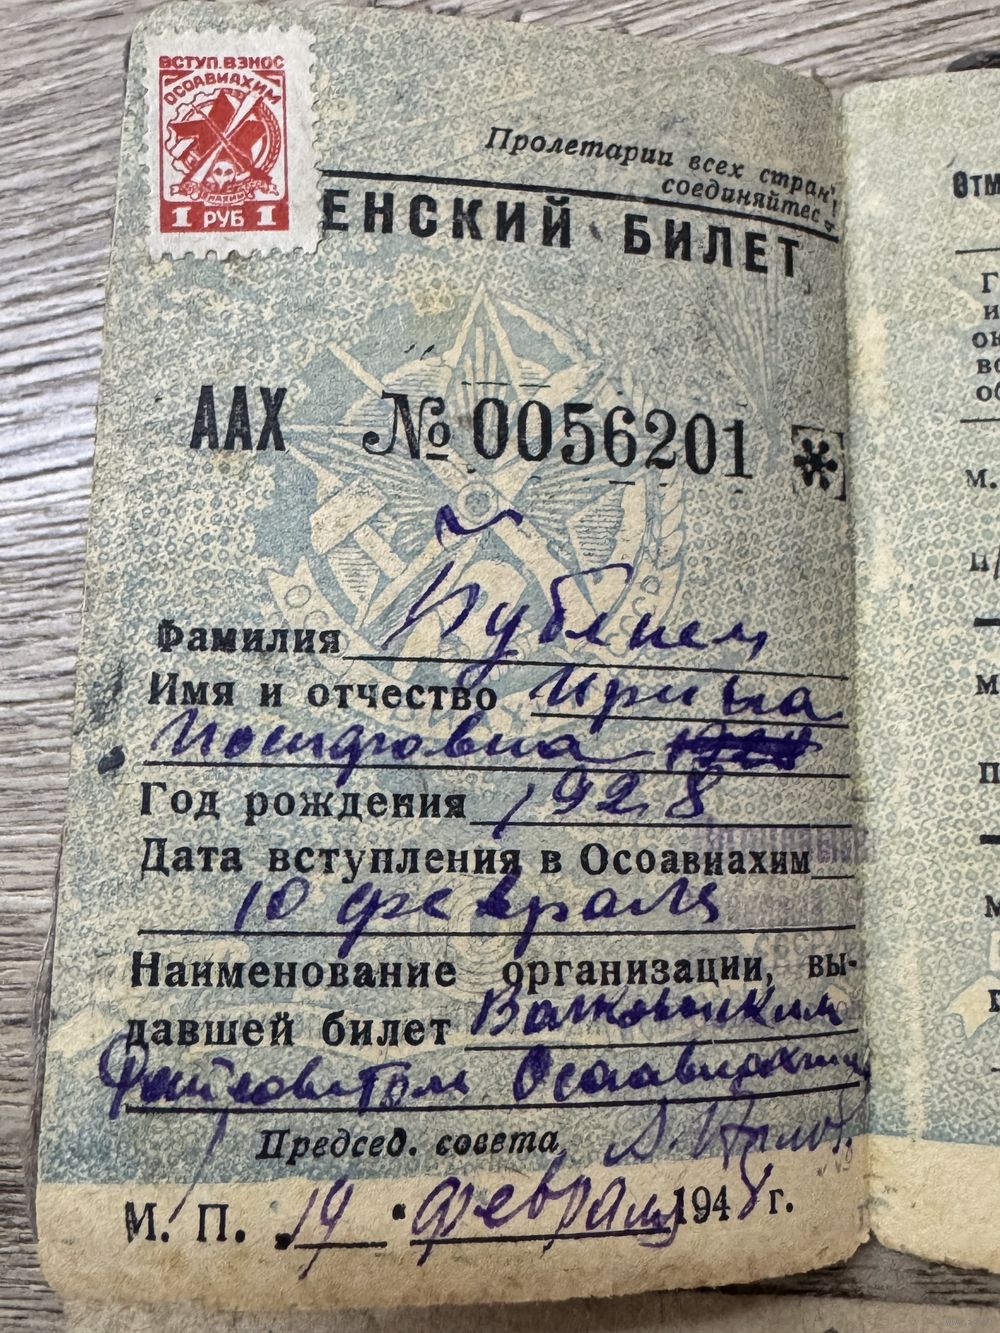 ВСТУП. ВЗНОС
ОСОАВИАХИМ
1 РУБ 1
Пролетарии всех стран,
соединяйтесь!
ЕНСКИЙ БИЛЕТ
ААХ № 0056201
Фамилия
Имя и отчество Ирина
Иосифовна
Год рождения 1928
Дата вступления в Осоавиахим
10 февраля
Наименование организации, вы-
давшей билет Волковыским
Райсоветом Осоавиахима
Председ. совета
М. П. 19 февраля 1948 г.
Отм
Г
и
ок
во
ос
м.
м
п
м